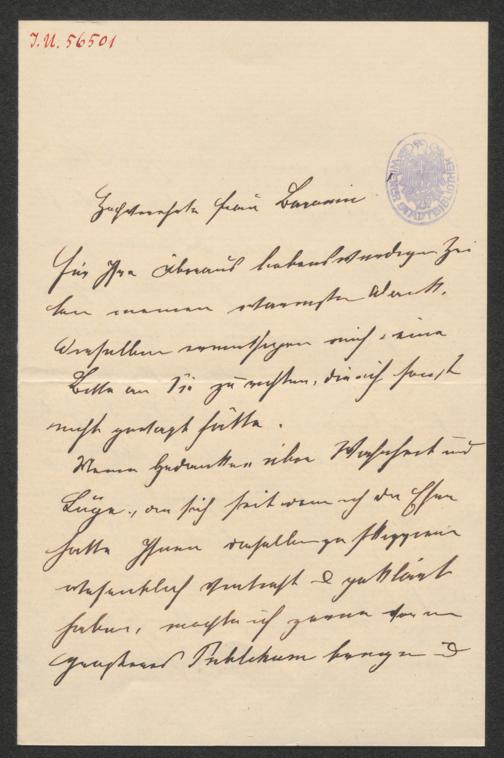 I.N. 56501
WIENER STADTBIBLIOTHEK
Hochverehrte Frau Baronin
für Ihre überaus liebenswürdigen Zei
len meinen wärmsten Dank.
Dieselben ermuthigen mich, eine
Bitte an Sie zu richten, die ich sonst
nicht gewagt hätte.
Meine Gedanken über Wahrheit und
Lüge, die sich seit dem ich die Ehre
hatte Ihnen dieselben zu skizziren
wesentlich vertieft & geklärt
haben, möchte ich gerne vor ein
grösseres Publikum bringen &